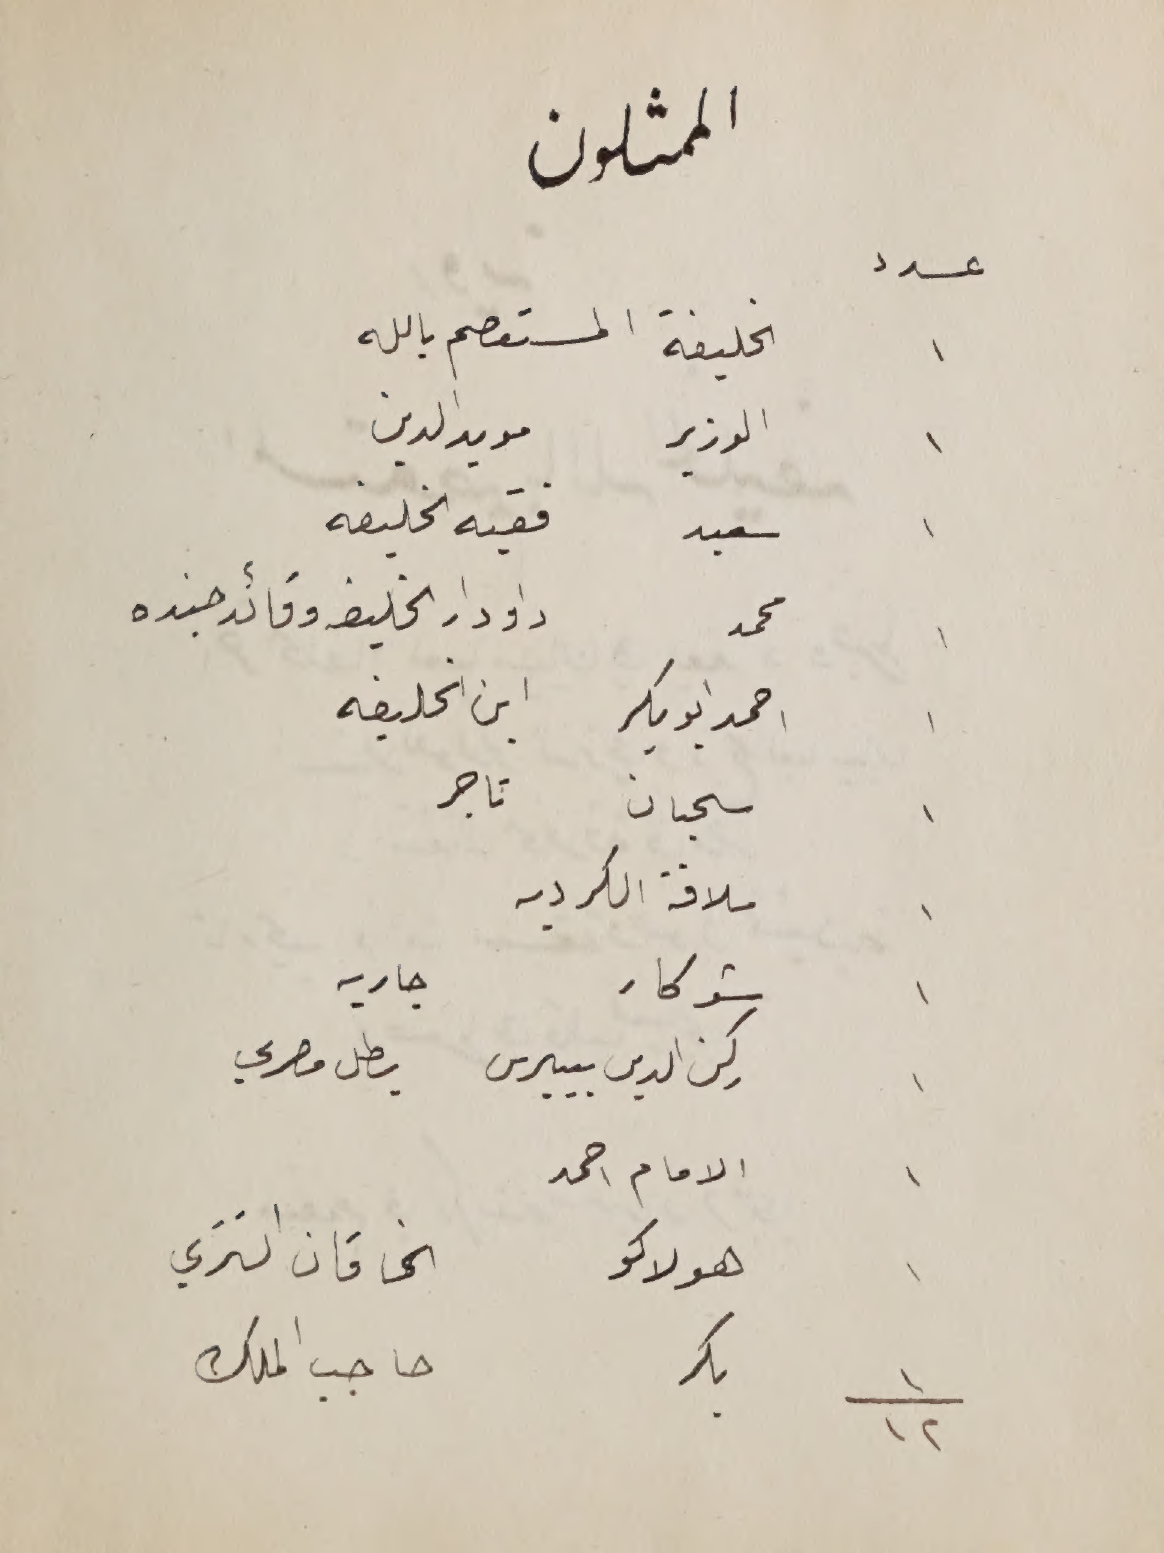 الممثلون
عدد
١ الخليفة المستعصم بالله
١ الوزير مويد الدين
١ سعيد فقيه الخليفه
١ محمد داودار الخليفه وقائد جنده
١ احمد ابو بكر ابن الخليفه
١ سحبان تاجر
١ سلافة الكرديه
١ شوكار جاريه
١ ركن الدين بيبرس بطل مصري
١ الامام احمد
١ هولاكو الخاقان التتري
١ بكر حاجب الملك
١٢